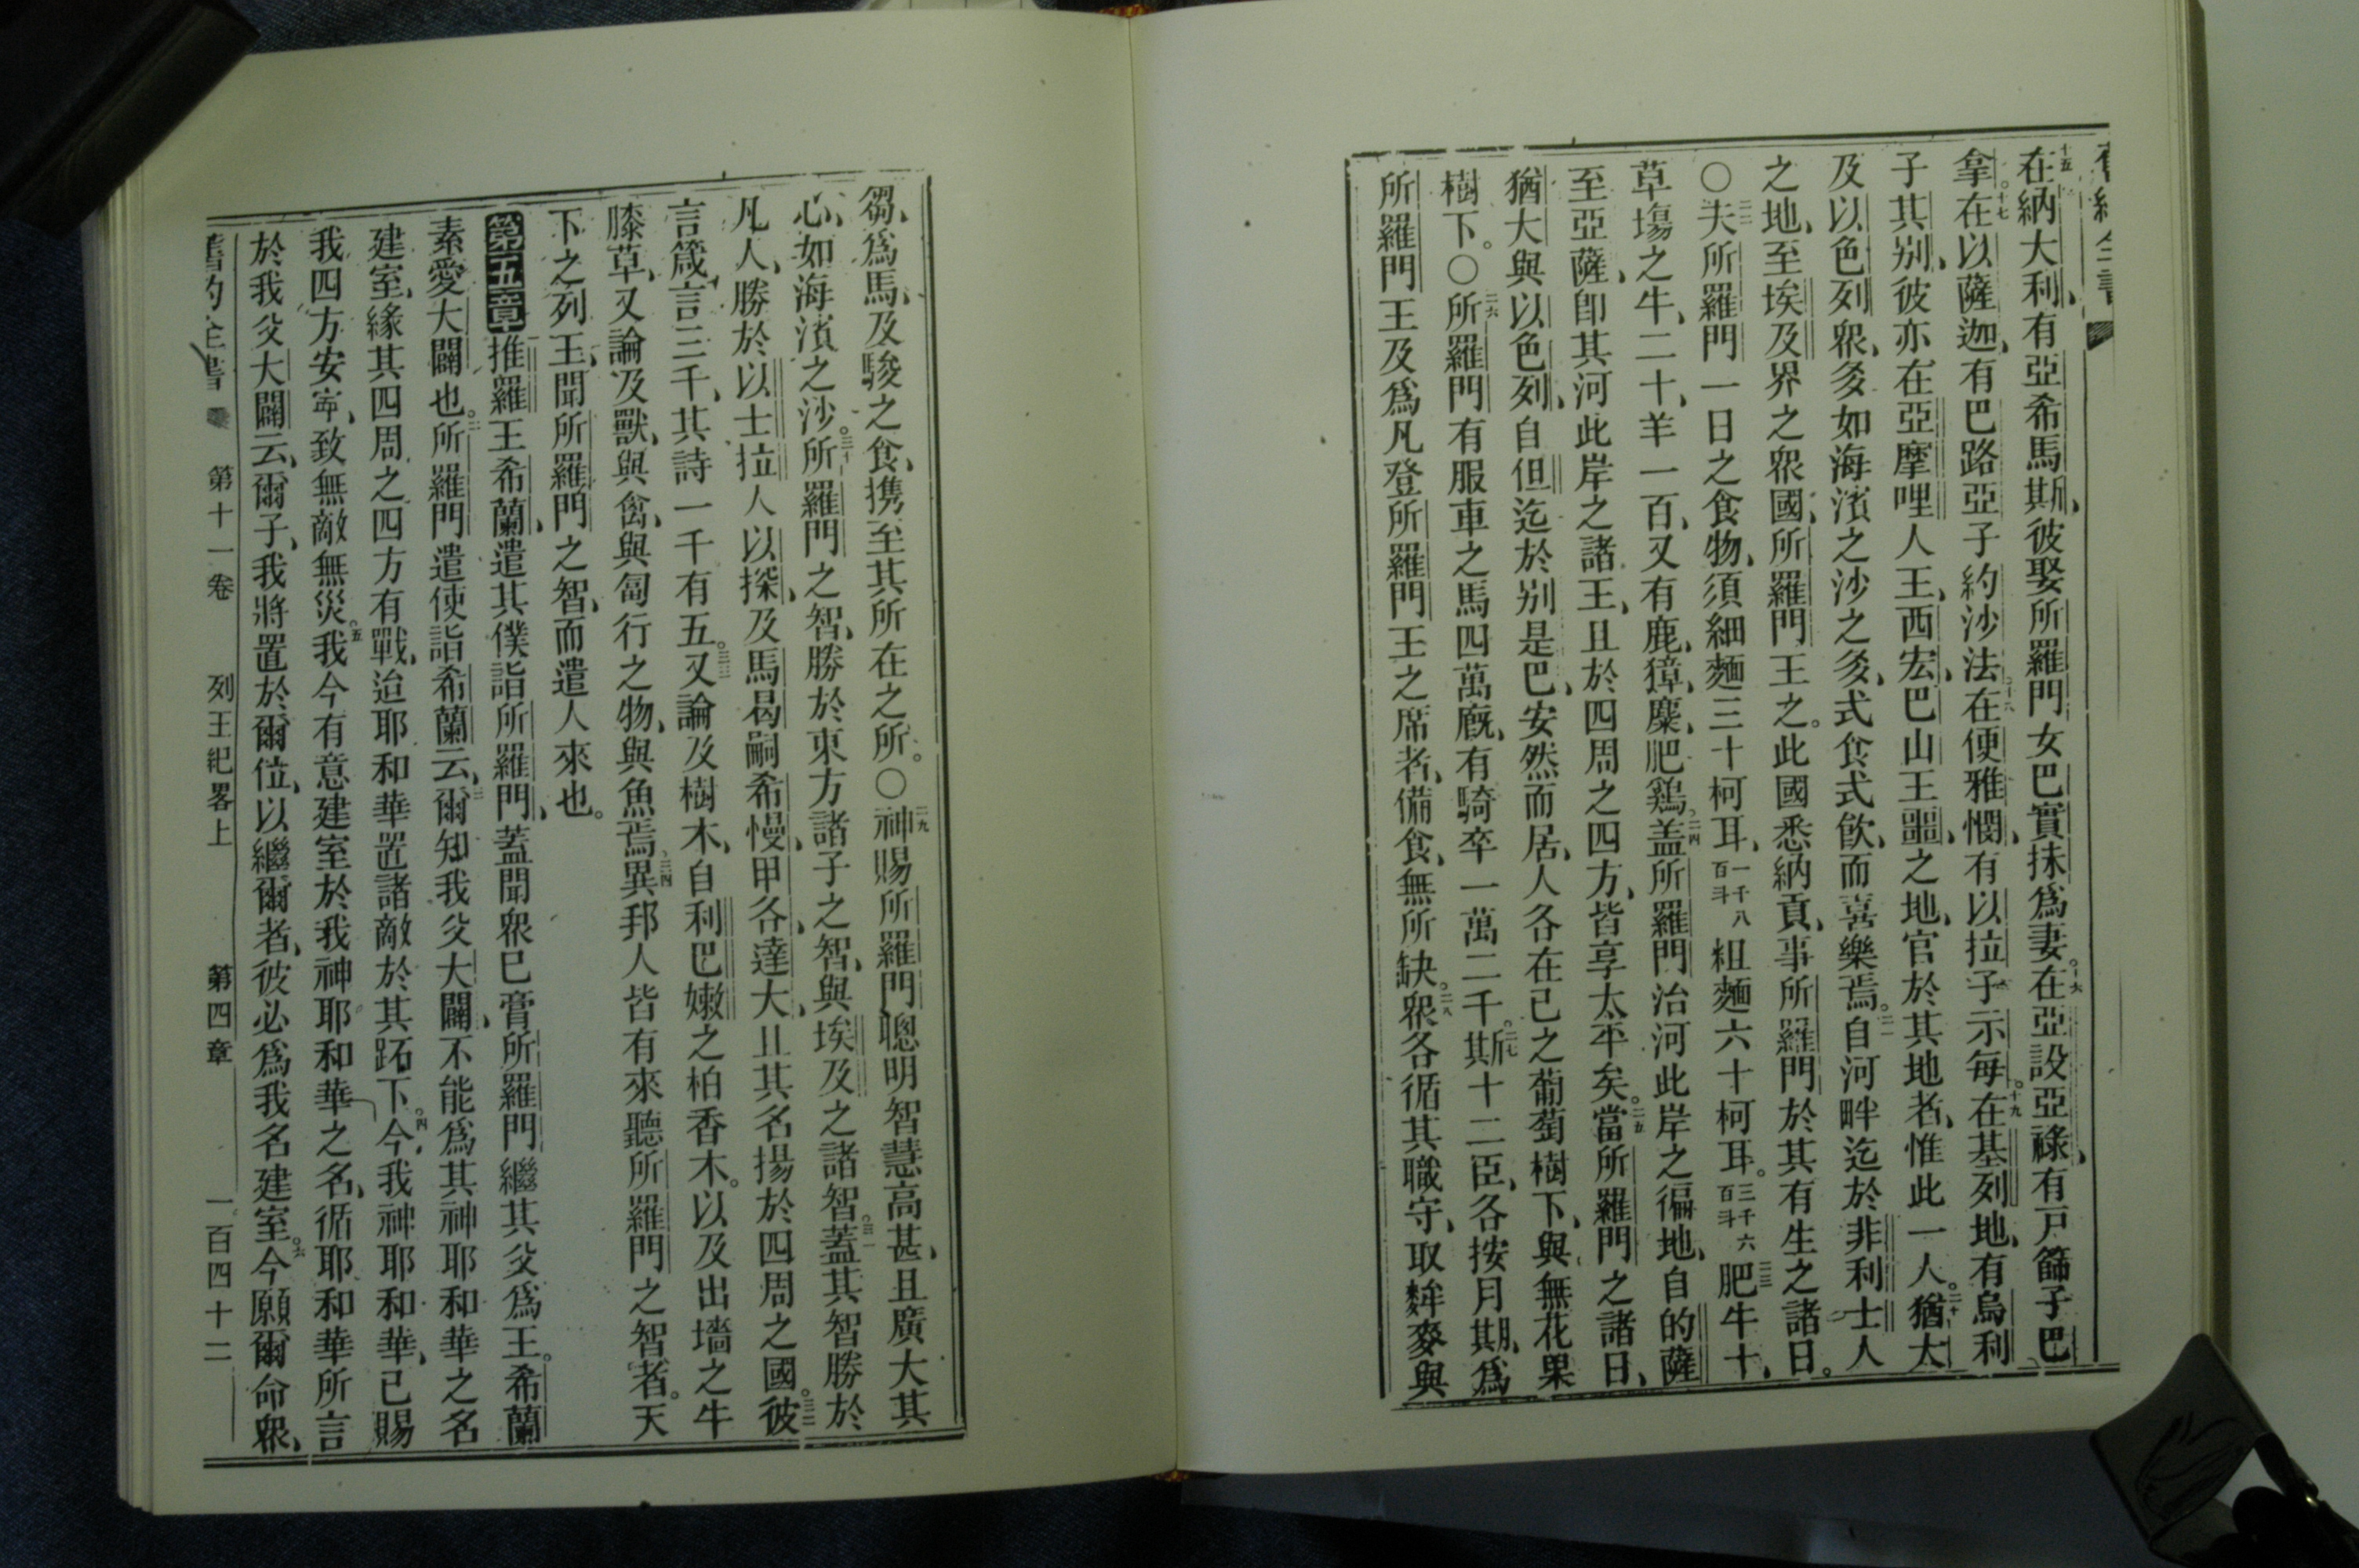 舊約全書
在納大利有亞希馬斯彼娶所羅門女巴實抹爲妻。十六在亞設亞祿、有戸篩子巴
拿。十七在以薩迦、有巴路亞子約沙法十八在便雅憫、有以拉子示每。十九在基列地、有烏利
子其别、彼亦在亞摩哩人王、西宏、巴山王噩、之地、官於其地者、惟此一人。二十猶大
及以色列眾、多如海濱之沙之多、式食式飲、而喜樂焉。二一自河畔迄於非利士人
之地、至埃及界之眾國、所羅門王之。此國悉納貢、事所羅門於其有生之諸日。
○二二夫所羅門一日之食物、須細麵三十柯耳、一千八百斗粗麵六十柯耳。三千六百斗二三肥牛十、
草塲之牛、二十、羊一百、又有鹿、獐、麋、肥鷄。二四盖所羅門治河此岸之徧地、自的薩
至亞薩、卽其河此岸之諸王、且於四周之四方、皆享太平矣。二五當所羅門之諸日、
猶大與以色列、自但迄於别是巴、安然而居、人各在已之葡萄樹下、與無花果
樹下。○二六所羅門有服車之馬四萬廐、有騎卒一萬二千。二七斯十二臣、各按月期、爲
所羅門王及爲凡登所羅門王之席者、備食、無所缺。二八眾各循其職守、取麰麥與
芻、爲馬、及駿之食、携至其所在之所。○二九神賜所羅門聰明智慧高甚、且廣大其
心、如海濱之沙。三十所羅門之智、勝於東方諸子之智、與埃及之諸智。三一蓋其智勝於
凡人、勝於以士拉人以探、及馬曷嗣希慢、甲各、達大、且其名揚於四周之國。三二彼
言箴言三千、其詩一千有五。三三又論及樹木、自利巴嫩之柏香木。以及出墻之牛
膝草、又論及獸、與禽、與匐行之物、與魚焉、三四異邦人皆有來聽所羅門之智者。天
下之列王、聞所羅門之智、而遣人來也。
第五章推羅王希蘭、遣其僕詣所羅門、蓋聞眾已膏所羅門繼其父爲王。希蘭
素愛大闢也。二所羅門遣使詣希蘭云、三爾知我父大闢、不能爲其神耶和華之名
建室、緣其四周之四方有戰、迨耶和華置諸敵於其跖下。四今、我神耶和華、已賜
我四方安寧、致無敵無災。五我今有意建室於我神耶和華之名、循耶和華所言
於我父大闢云、爾子、我將置於爾位、以繼爾者、彼必爲我名建室。六今願爾命眾、
舊約全書 第十一卷 列王紀畧上 第四章 一百四十二